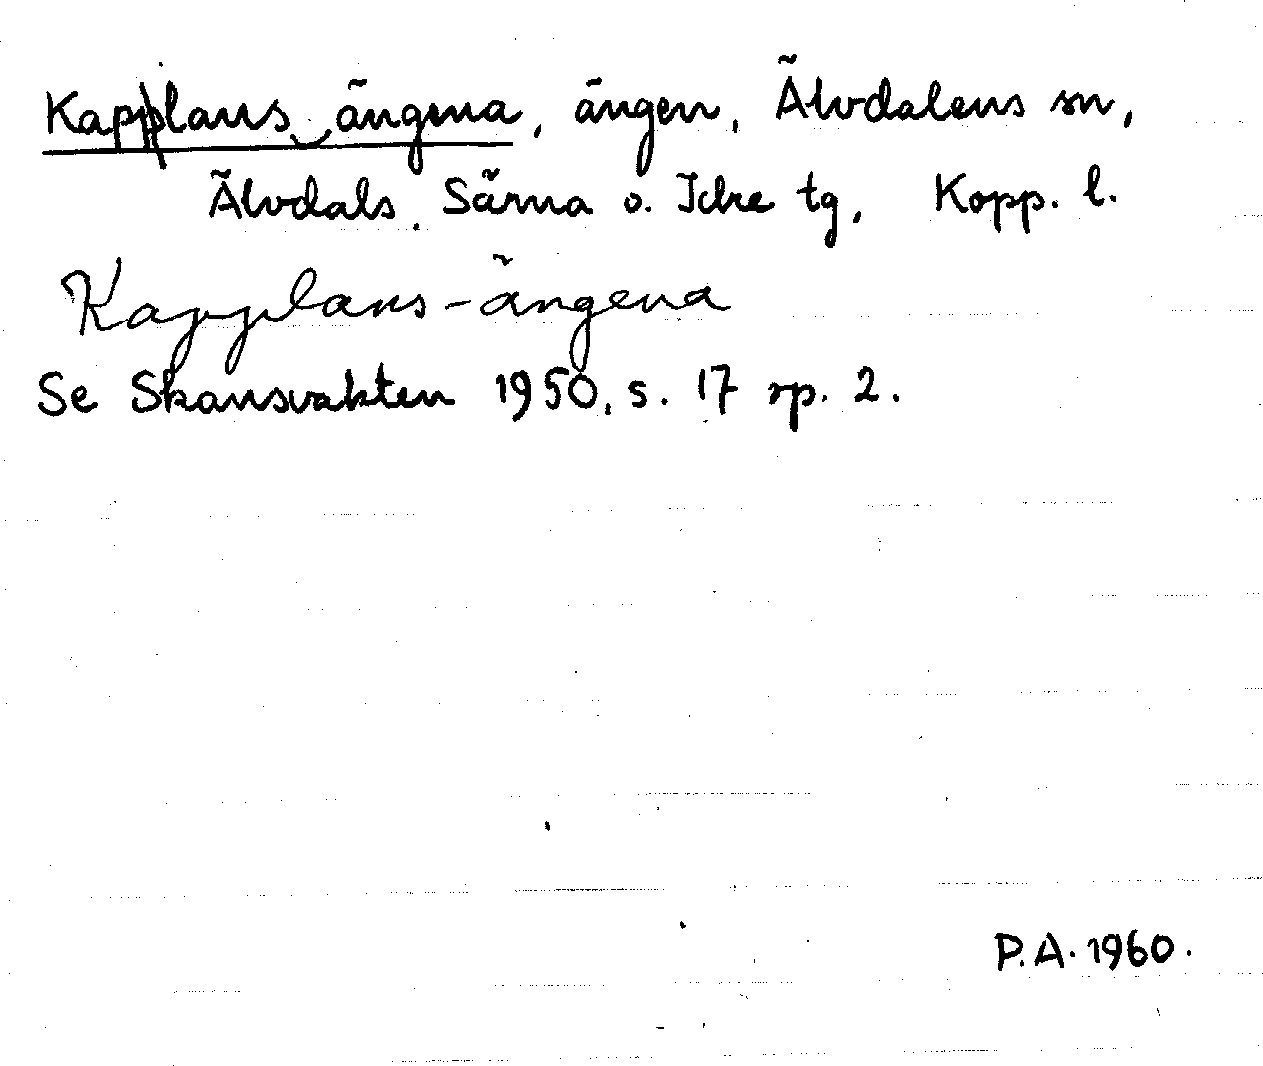 Kapplans ängena, ängen, Älvdalens sn,
Älvdals, Särna o. Idre tg, Kopp. l.
Kapplans-ängena
Se Skansvakten 1950, s. 17 sp. 2.
P.A. 1960.